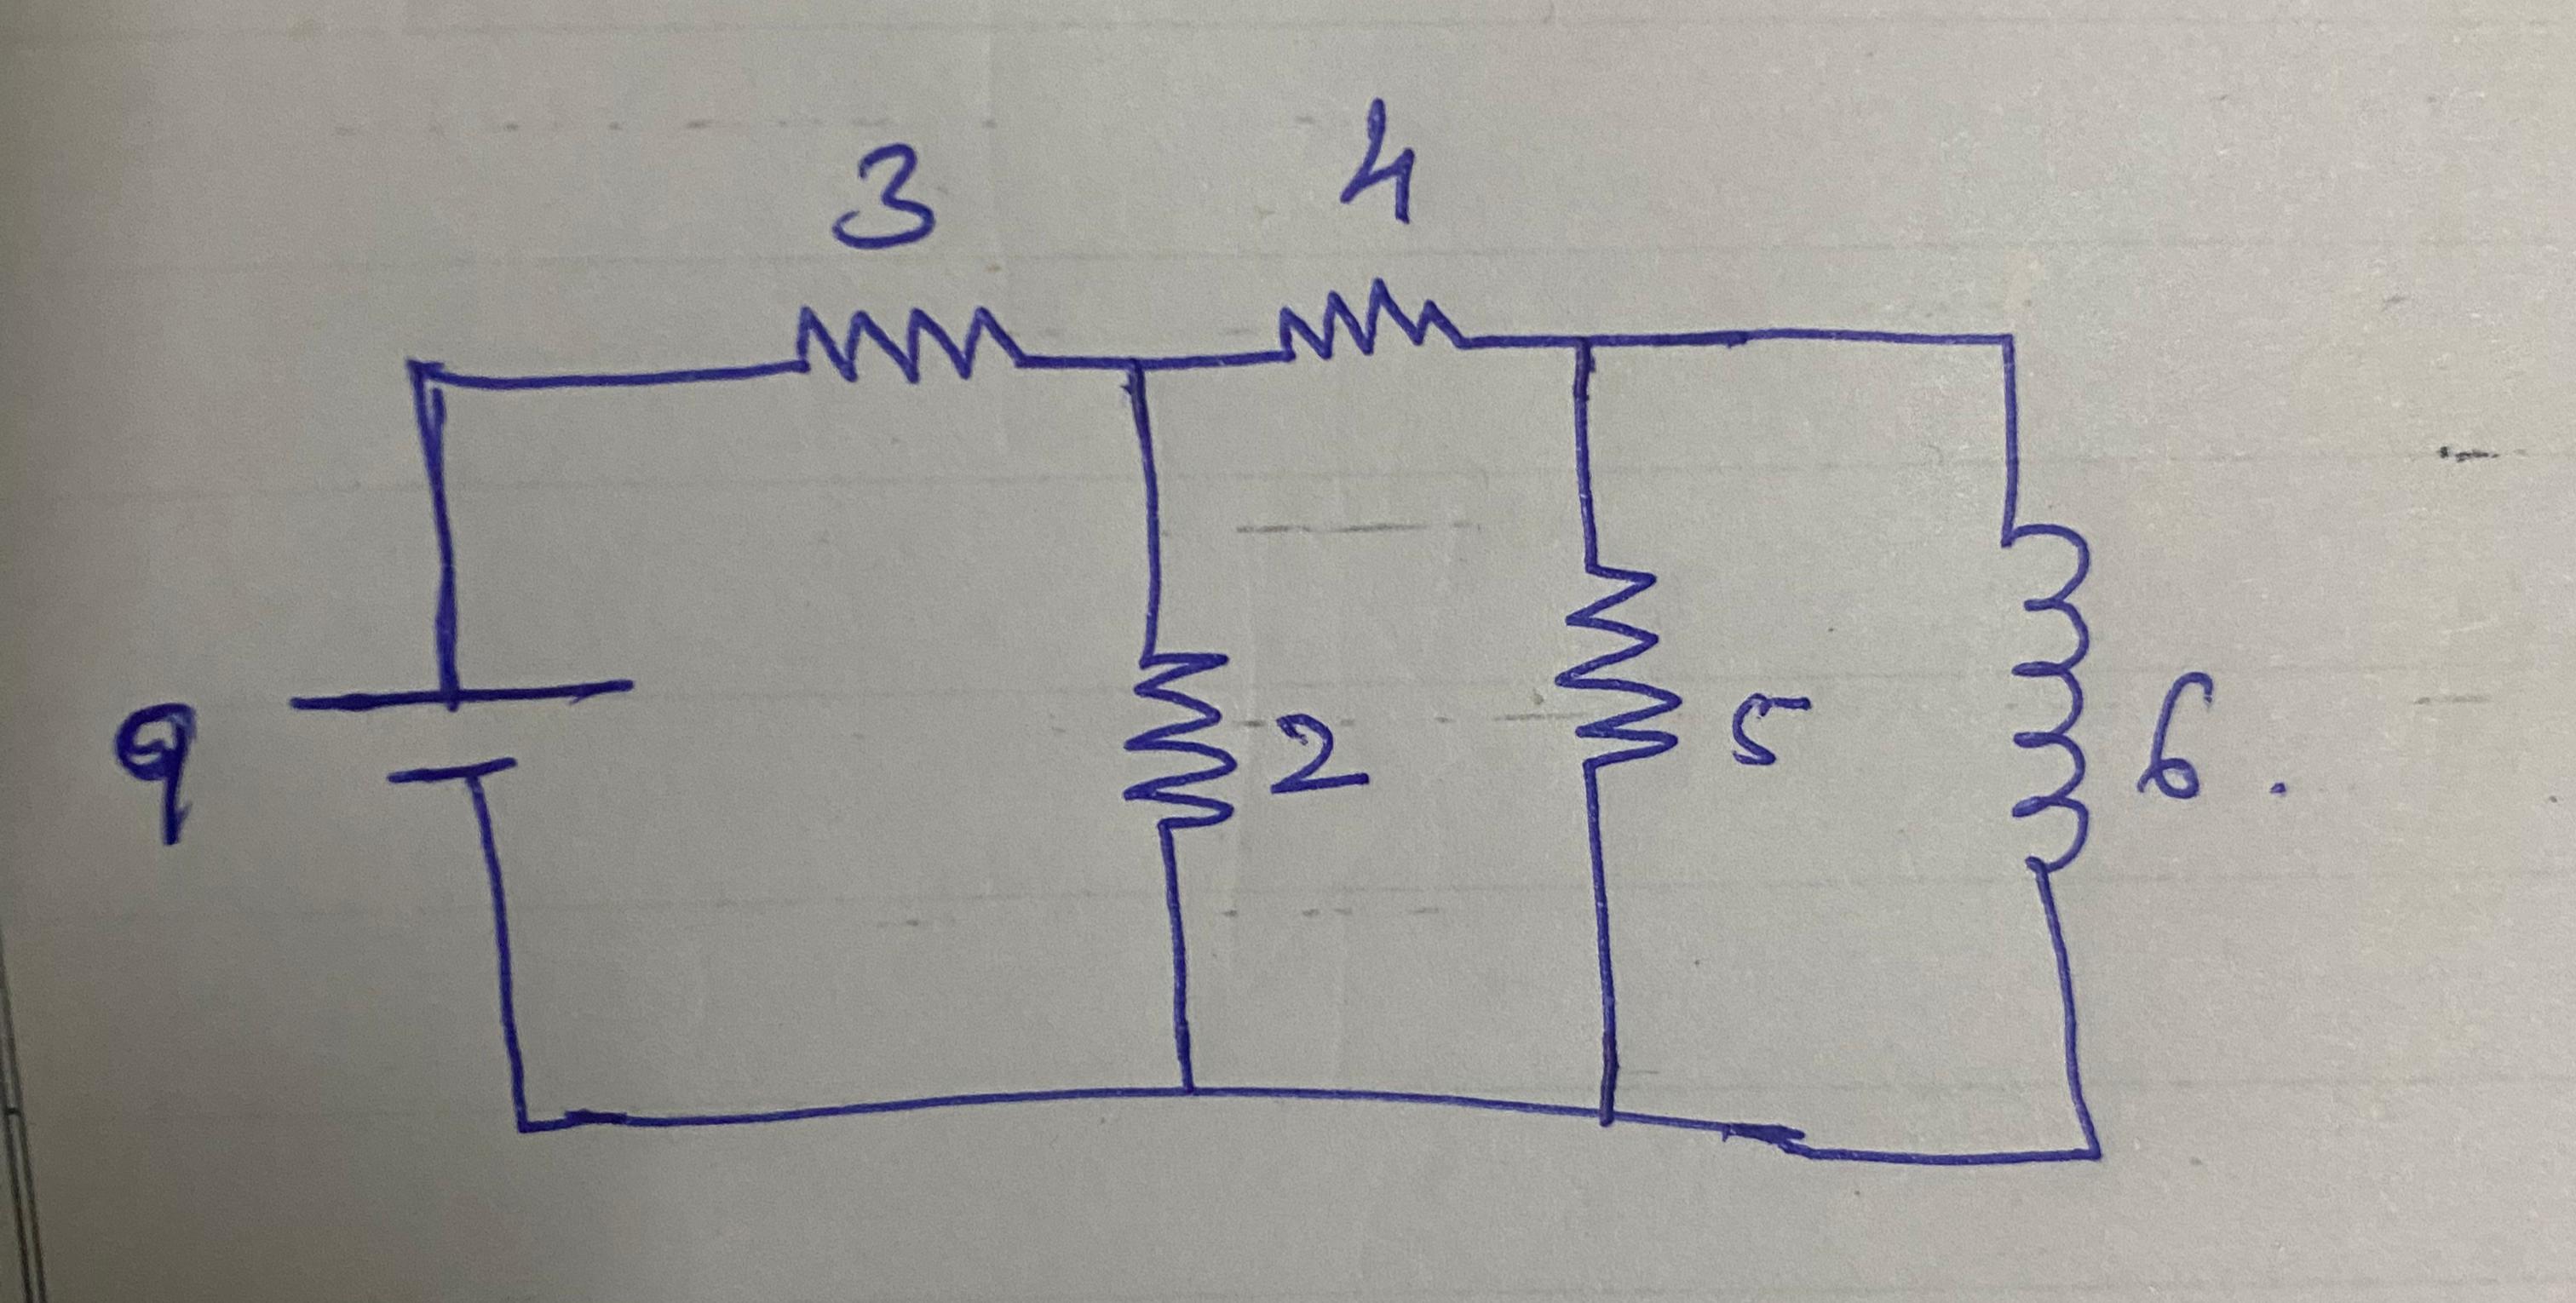 3 4
9 2 5 6.